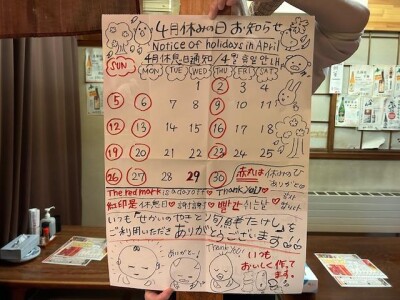 4月休みの日お知らせ
Notice of holidays in April
4月休息日通知 / 4월 휴일 안내
SUN MON TUE WED THU FRI SAT
1 2 3 4
5 6 7 8 9 10 11
12 13 14 15 16 17 18
19 20 21 22 23 24 25
26 27 28 29 30 赤丸は休みのひ
ありがと♡
The red mark is a day off♥ Thank You♥
紅印是休息日♥谢谢♥빨간 쉬는날♥
いつも「せかいのやまとリ旬鮮たけし」を
ご利用いただきありがとうございます
ありがと Thank You! いつも
おいしく作って
ます。